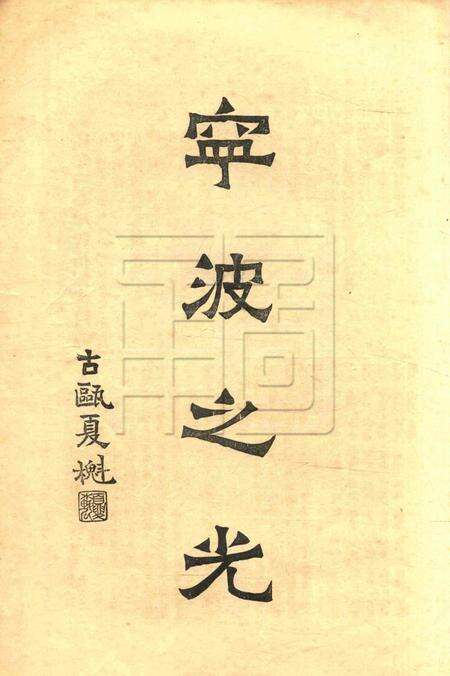 寧波之光
古甌夏櫆